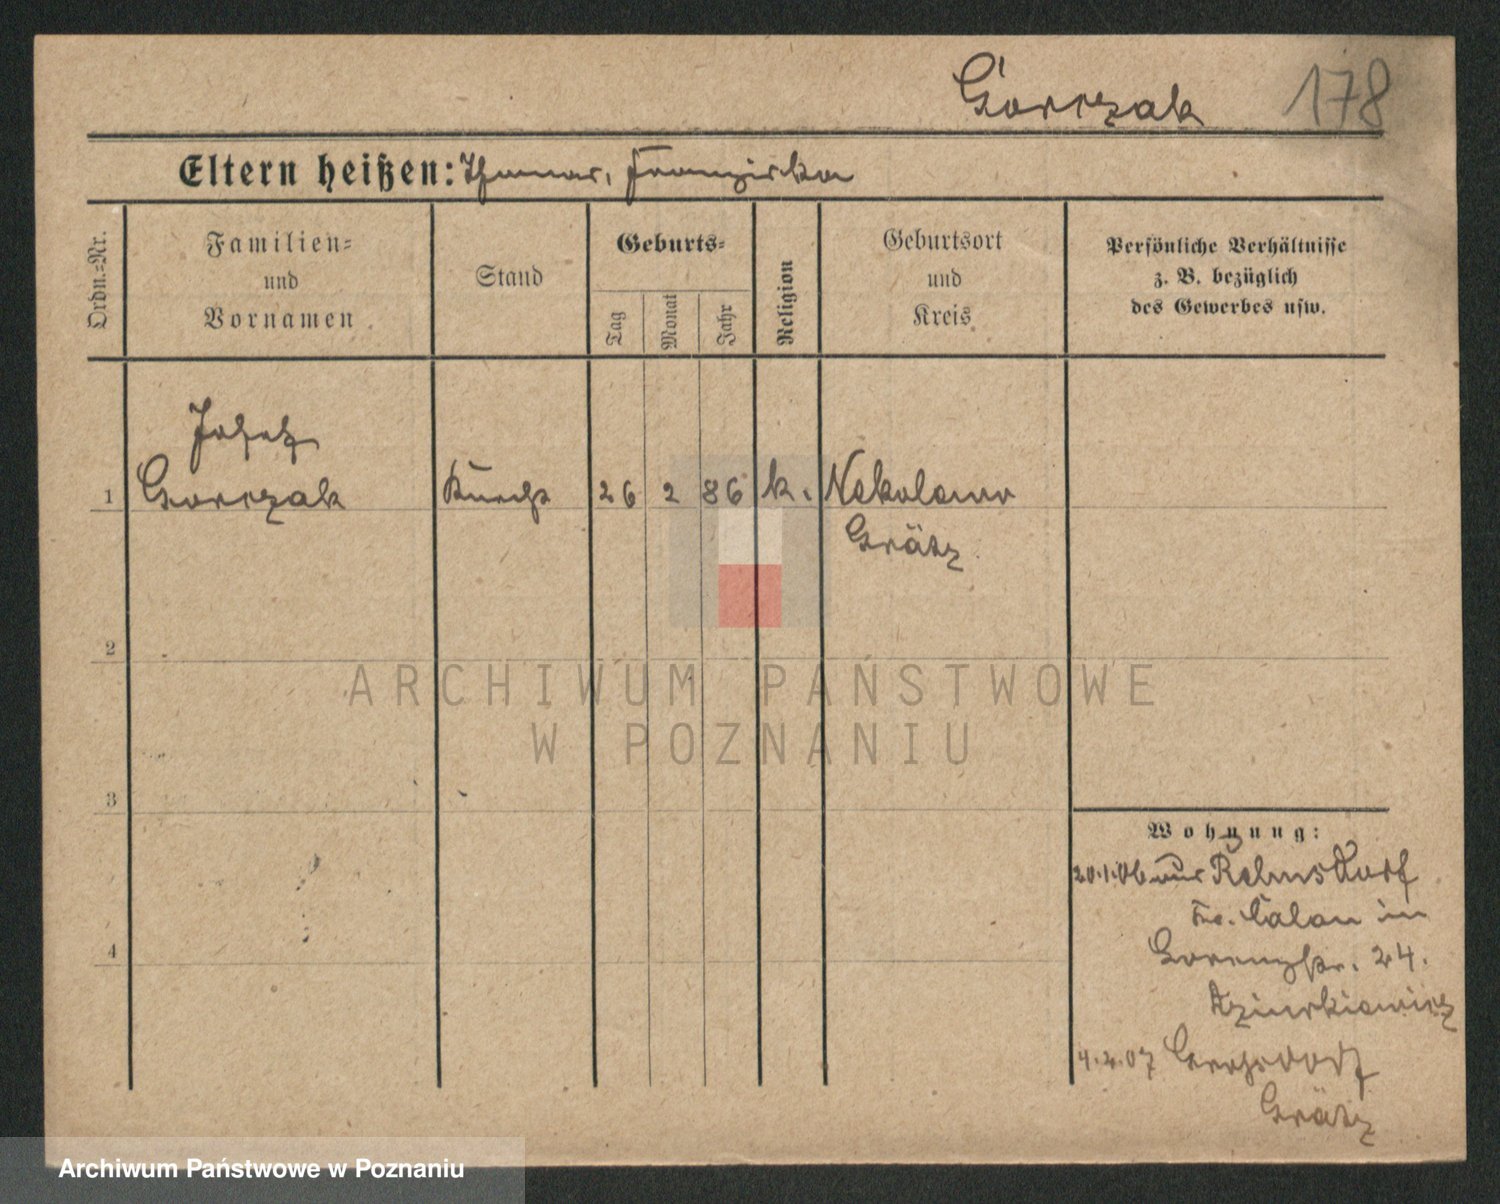 Gorczak 178
Eltern heißen: Thomas, Franziska
Ordn.=Nr.
Familien=
und
Vornamen
Stand
Geburts=
Tag
Monat
Jahr
Religion
Geburtsort
und
Kreis
Persönliche Verhältnisse
z. B. bezüglich
des Gewerbes usw.
Josef
1 Gorczak 26 2 86 k.
Grätz
2
3
4
Wohnung:
20.1.06 aus
in
24.
4.2.07
Grätz
ARCHIWUM PAŃSTWOWE
W POZNANIU
Archiwum Państwowe w Poznaniu